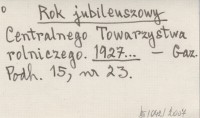 Rok jubileuszowy
Centralnego Towarzystwa
rolniczego. 1927... — Gaz.
Podh. 15, nr 23.